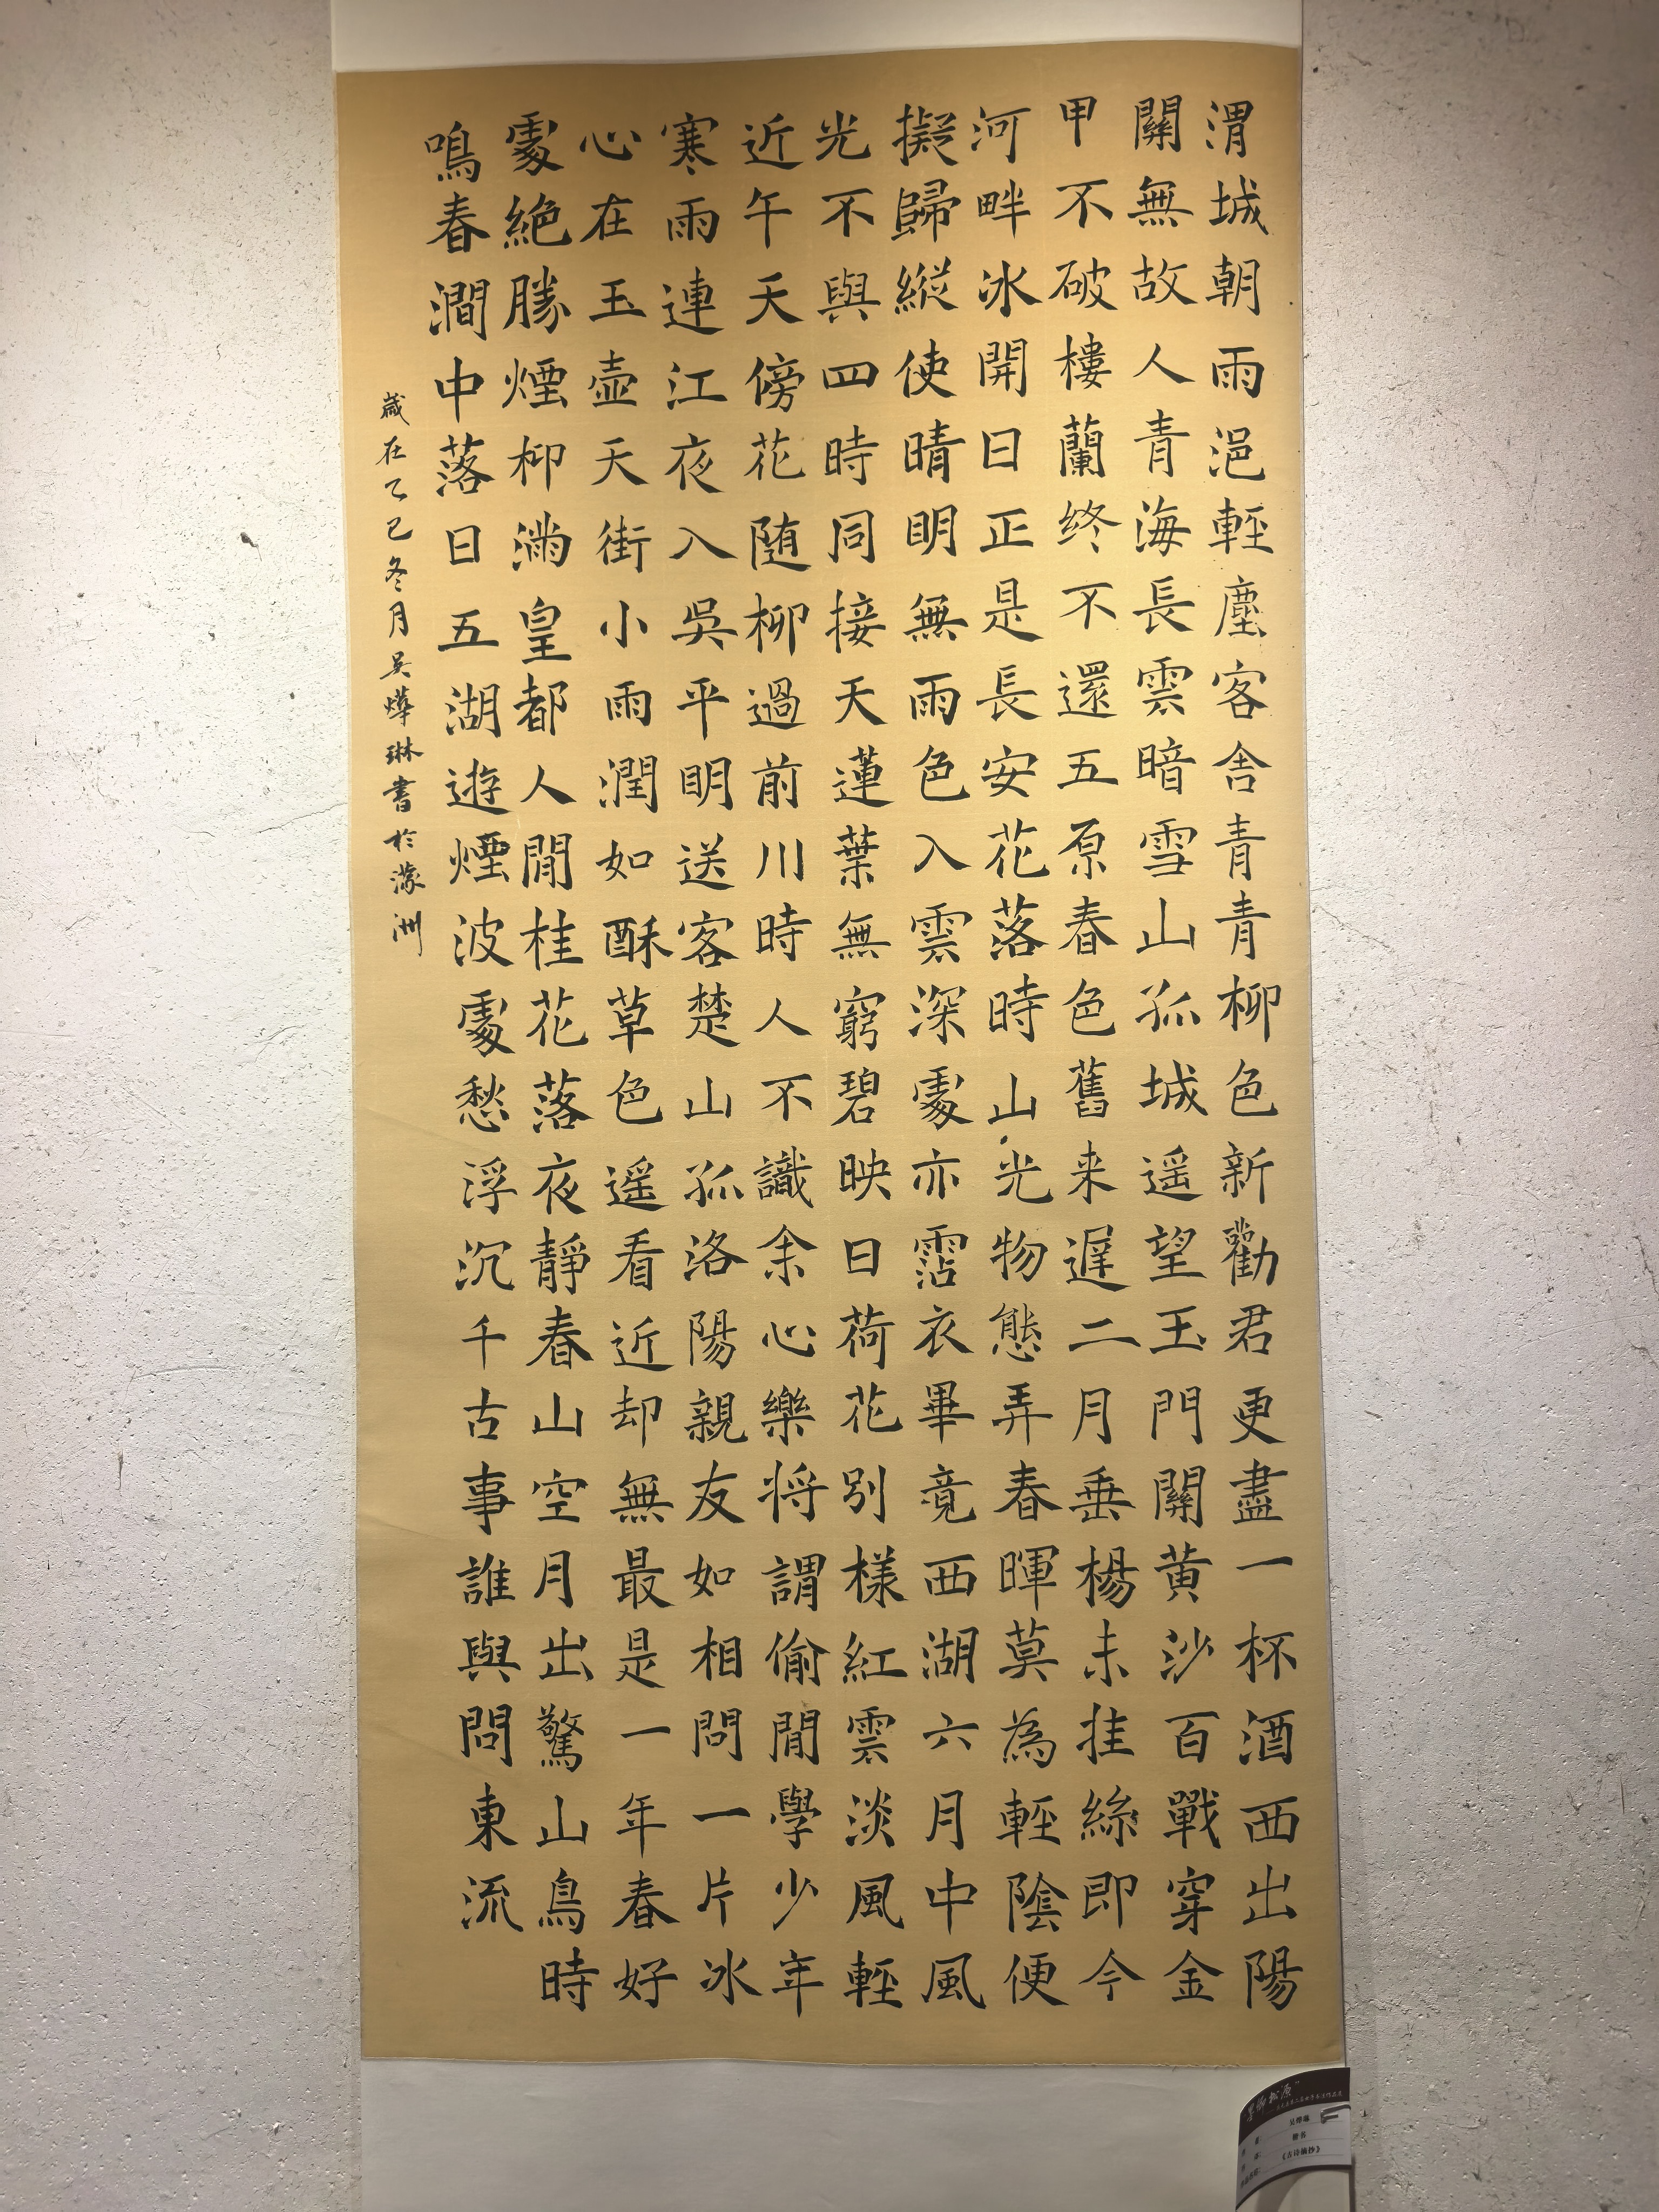 渭城朝雨浥輕塵客舍青青柳色新勸君更盡一杯酒西出陽
關無故人青海長雲暗雪山孤城遥望玉門關黄沙百戰穿金
甲不破樓蘭终不還五原春色舊来遲二月垂楊未挂絲即今
河畔冰開日正是長安花落時山光物態弄春暉莫為輕陰便
擬歸縱使晴明無雨色入雲深處亦霑衣畢竟西湖六月中風
光不與四時同接天蓮葉無窮碧映日荷花別樣紅雲淡風輕
近午天傍花随柳過前川時人不識余心樂将謂偷閒學少年
寒雨連江夜入吳平明送客楚山孤洛陽親友如相問一片冰
心在玉壺天街小雨潤如酥草色遥看近却無最是一年春好
處絕勝煙柳滿皇都人閒桂花落夜靜春山空月出驚山鳥時
鳴春澗中落日五湖遊煙波處愁浮沉千古事誰與問東流
歲在乙巳冬月吴燁琳書於濛洲
吴烨琳
楷书
《古诗摘抄》